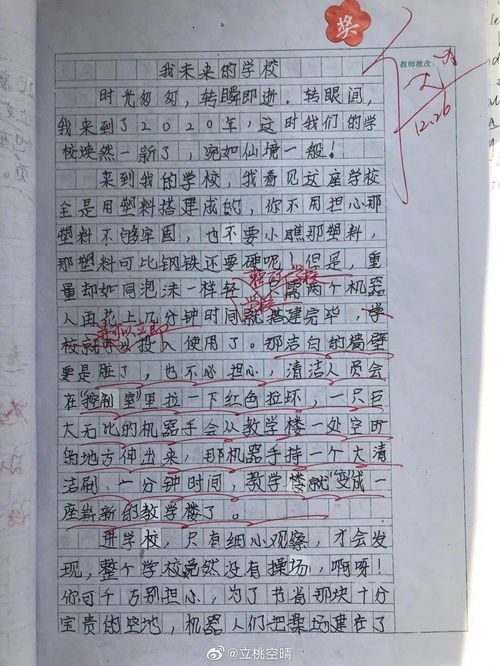 奖
教师批改:
12.26
我未来的学校
时光匆匆，转瞬即逝．转眼间，
我来到了2020年，这时我们的学
校焕然一新了，宛如仙境一般！
来到我的学校，我看见这座学校
全是用塑料搭建成的，你不用担心那
塑料不够牢固，也不要小瞧那塑料，
那塑料可比钢铁还要硬呢！但是，重
整所学校
量却如同泡沫一样轻，只需两个机器
学校
人再花上几分钟时间就搭建完毕，学
可以立即
校就可以投入使用了。那洁白的墙壁
要是脏了，也不必担心，清洁人员会
在“控制室”里拉一下红色拉环，一只巨
大无比的机器手会从教学楼一处空旷
的地方伸出来，那机器手持一个大清
洁刷，一分钟时间，教学楼就“变成一
座崭新的教学楼了。
进学校，只有细小观察，才会发
现，整个学校竟然没有操场，啊呀！
你可千万别担心，为了节省那块十分
宝贵的空地，机器人们把操场建在了
@立桃空晴